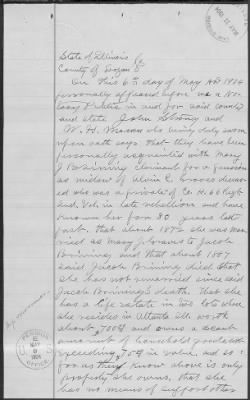 State of Illinois
County of Logan
On this 6th day of May AD 1904
personally appeared before me a No-
tary Public in and for said county
and state John Strong and
W. H. Mason who being duly sworn
upon oath says that they have been
personally acquainted with Mary
J Brining claimant for a pension
as widow of Alvin C. Graves deceas-
ed who was a private of Co. H. 66 Regt
Ind. Vols in late rebellion and have
known her for 30 years last
past. that about 1872 she was mar-
ried as Mary J Graves to Jacob
Brining and that about 1887
said Jacob Brining died that
she has not remarried since said
Jacob Brining's death. That she
has a life estate in two lots where
she resides in Atlanta Ills worth
about 700$ and owns a scant
amount of household goods not
exceeding $ in value. and so
far as they know above is only
property she owns, that she
has no means of support other
PENSION
MAY
OFFICE